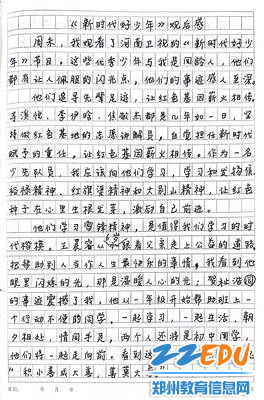 《新时代好少年》观后感
周末，我观看了河南卫视的《新时代好少
年》节目。这些优秀少年与我是同龄人，他们
都有让人佩服的闪光点，他们的事迹感人至深。
他们追寻先辈足迹，让红色基因薪火相传。
李伊晗、都是几年如一日，坚
持做红色基地的志愿讲解员，自觉担任新时代
赋予的重任，让红色基因薪火相传。作为一名
少先队员，我应该向他们学习，学习和发扬焦
裕禄精神、红旗渠精神和大别山精神，让红色
种子在心里生根发芽，激励自己前进。
他们学习雷锋精神，是值得我们学习的时
代楷模。王晨睿从小踩着父亲走上公益的道路，
把帮助别人当作人生最快乐的事情。我看到他
眼里闪烁的光，那是温暖人心的光；
的事迹震撼了我，他从一年级开始帮助班上一
个行动不便的同学，一起学习，一起生活，朝
夕相处，情同手足，两个人还将是初中同学，
他们将一起走向前。看到这
“积小善成大善，善莫大
年 月 日
ZZEDU
郑州教育信息网